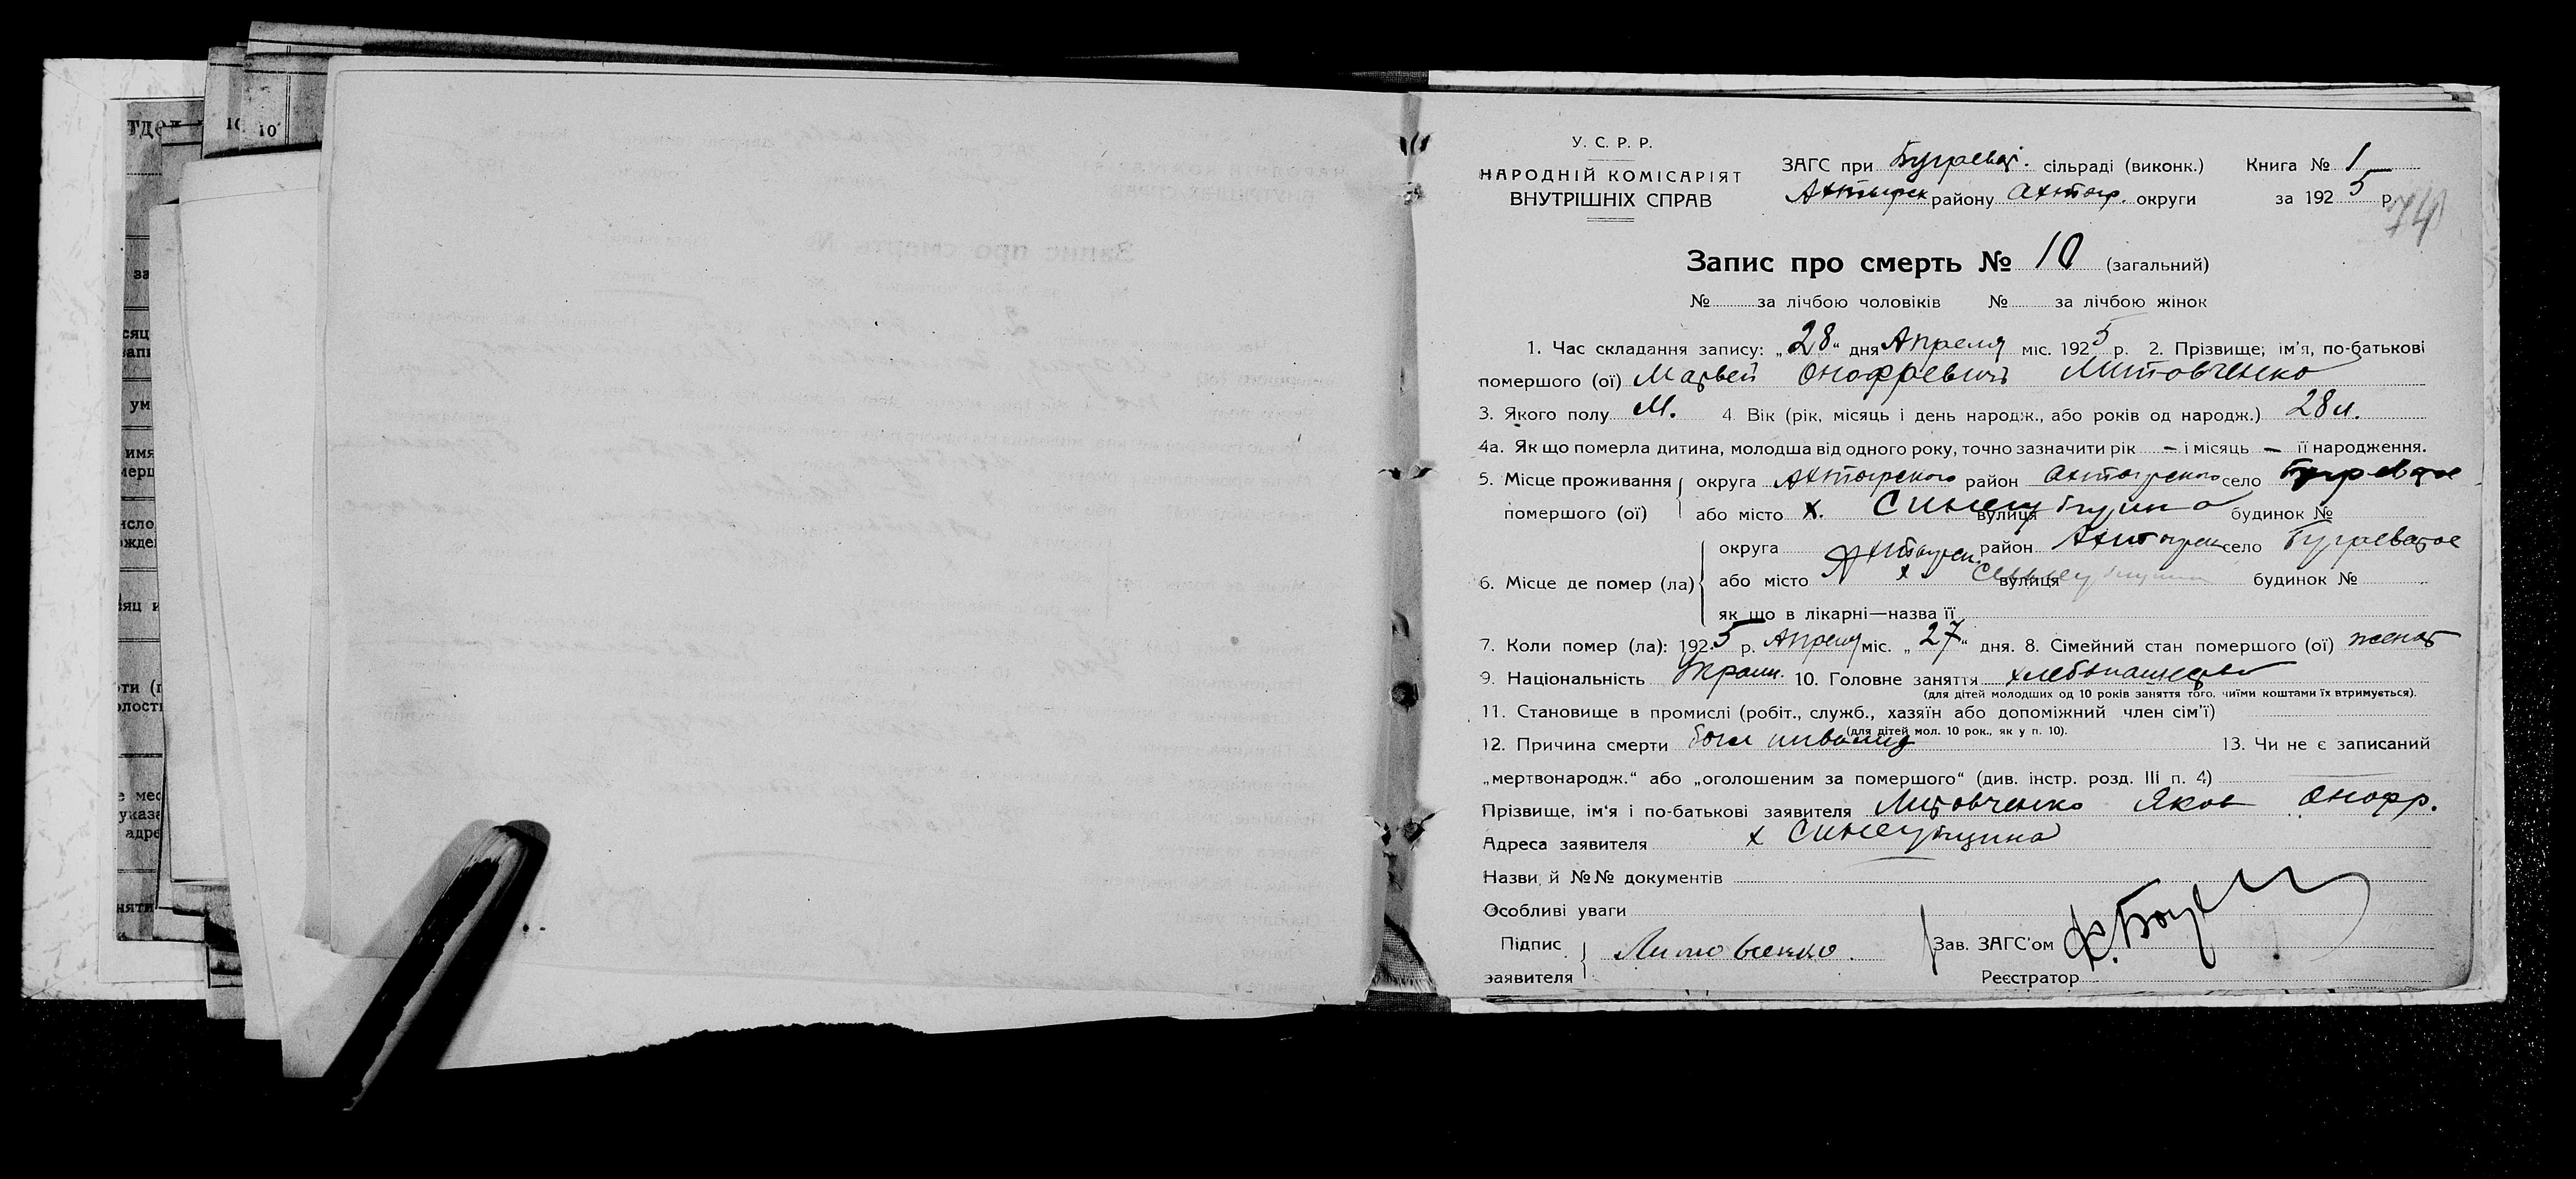 У. С. Р. Р.
НАРОДНІЙ КОМІСАРІЯТ
ВНУТРІШНІХ СПРАВ
ЗАГС при Бугреват. сільраді (виконк.) Книга № 1
Ахтырск району Ахтыр. округи за 1925 р.
74
Запис про смерть № 10 (загальний)
№ за лічбою чоловіків № за лічбою жінок
1. Час складання запису: „28“ дня Апреля міс. 1925 р. 2. Прізвище, ім'я, по-батькові
помершого (ої) Матвей Онофреевичъ Литовченко
3. Якого полу М. 4. Вік (рік, місяць і день народж., або років од народж.) 28 л.
4а. Як що померла дитина, молодша від одного року, точно зазначити рік – і місяць – її народження.
5. Місце проживання округа Ахтырского район Ахтырского село Бугреватое
помершого (ої) або місто х. вулиця будинок №
округа Ахтырск район Ахтырск село Бугреватое
6. Місце де помер (ла) або місто х вулиця будинок №
як що в лікарні—назва її
7. Коли помер (ла): 1925 р. Апреля міс. „27“ дня. 8. Сімейний стан помершого (ої) женат
9. Національність Украин. 10. Головне заняття хлебопашество
(для дітей молодших од 10 років заняття того, чиїми коштами їх втримується).
11. Становище в промислі (робіт., служб., хазяїн або допоміжний член сім'ї)
(для дітей мол. 10 рок., як у п. 10).
12. Причина смерти инвалид 13. Чи не є записаний
„мертвонародж.“ або „оголошеним за помершого“ (див. інстр. розд. III п. 4)
Прізвище, ім'я і по-батькові заявителя Литовченко Яков Онофр.
Адреса заявителя х
Назви й №№ документів
Особливі уваги
Підпис
заявителя Литовченко. Зав. ЗАГС'ом
Реєстратор